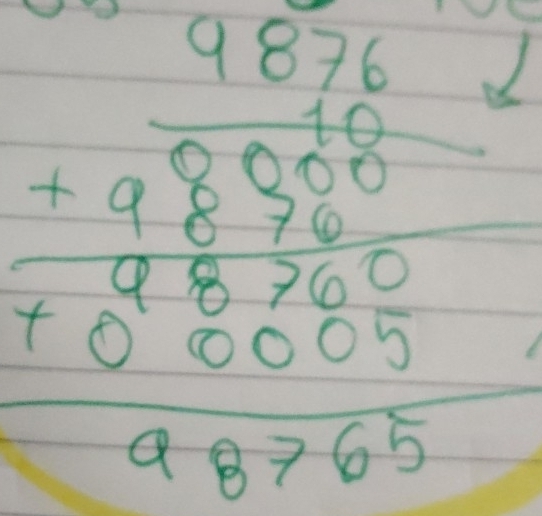 9876
10
0000
+ 9876
98760
+ 00005
98765